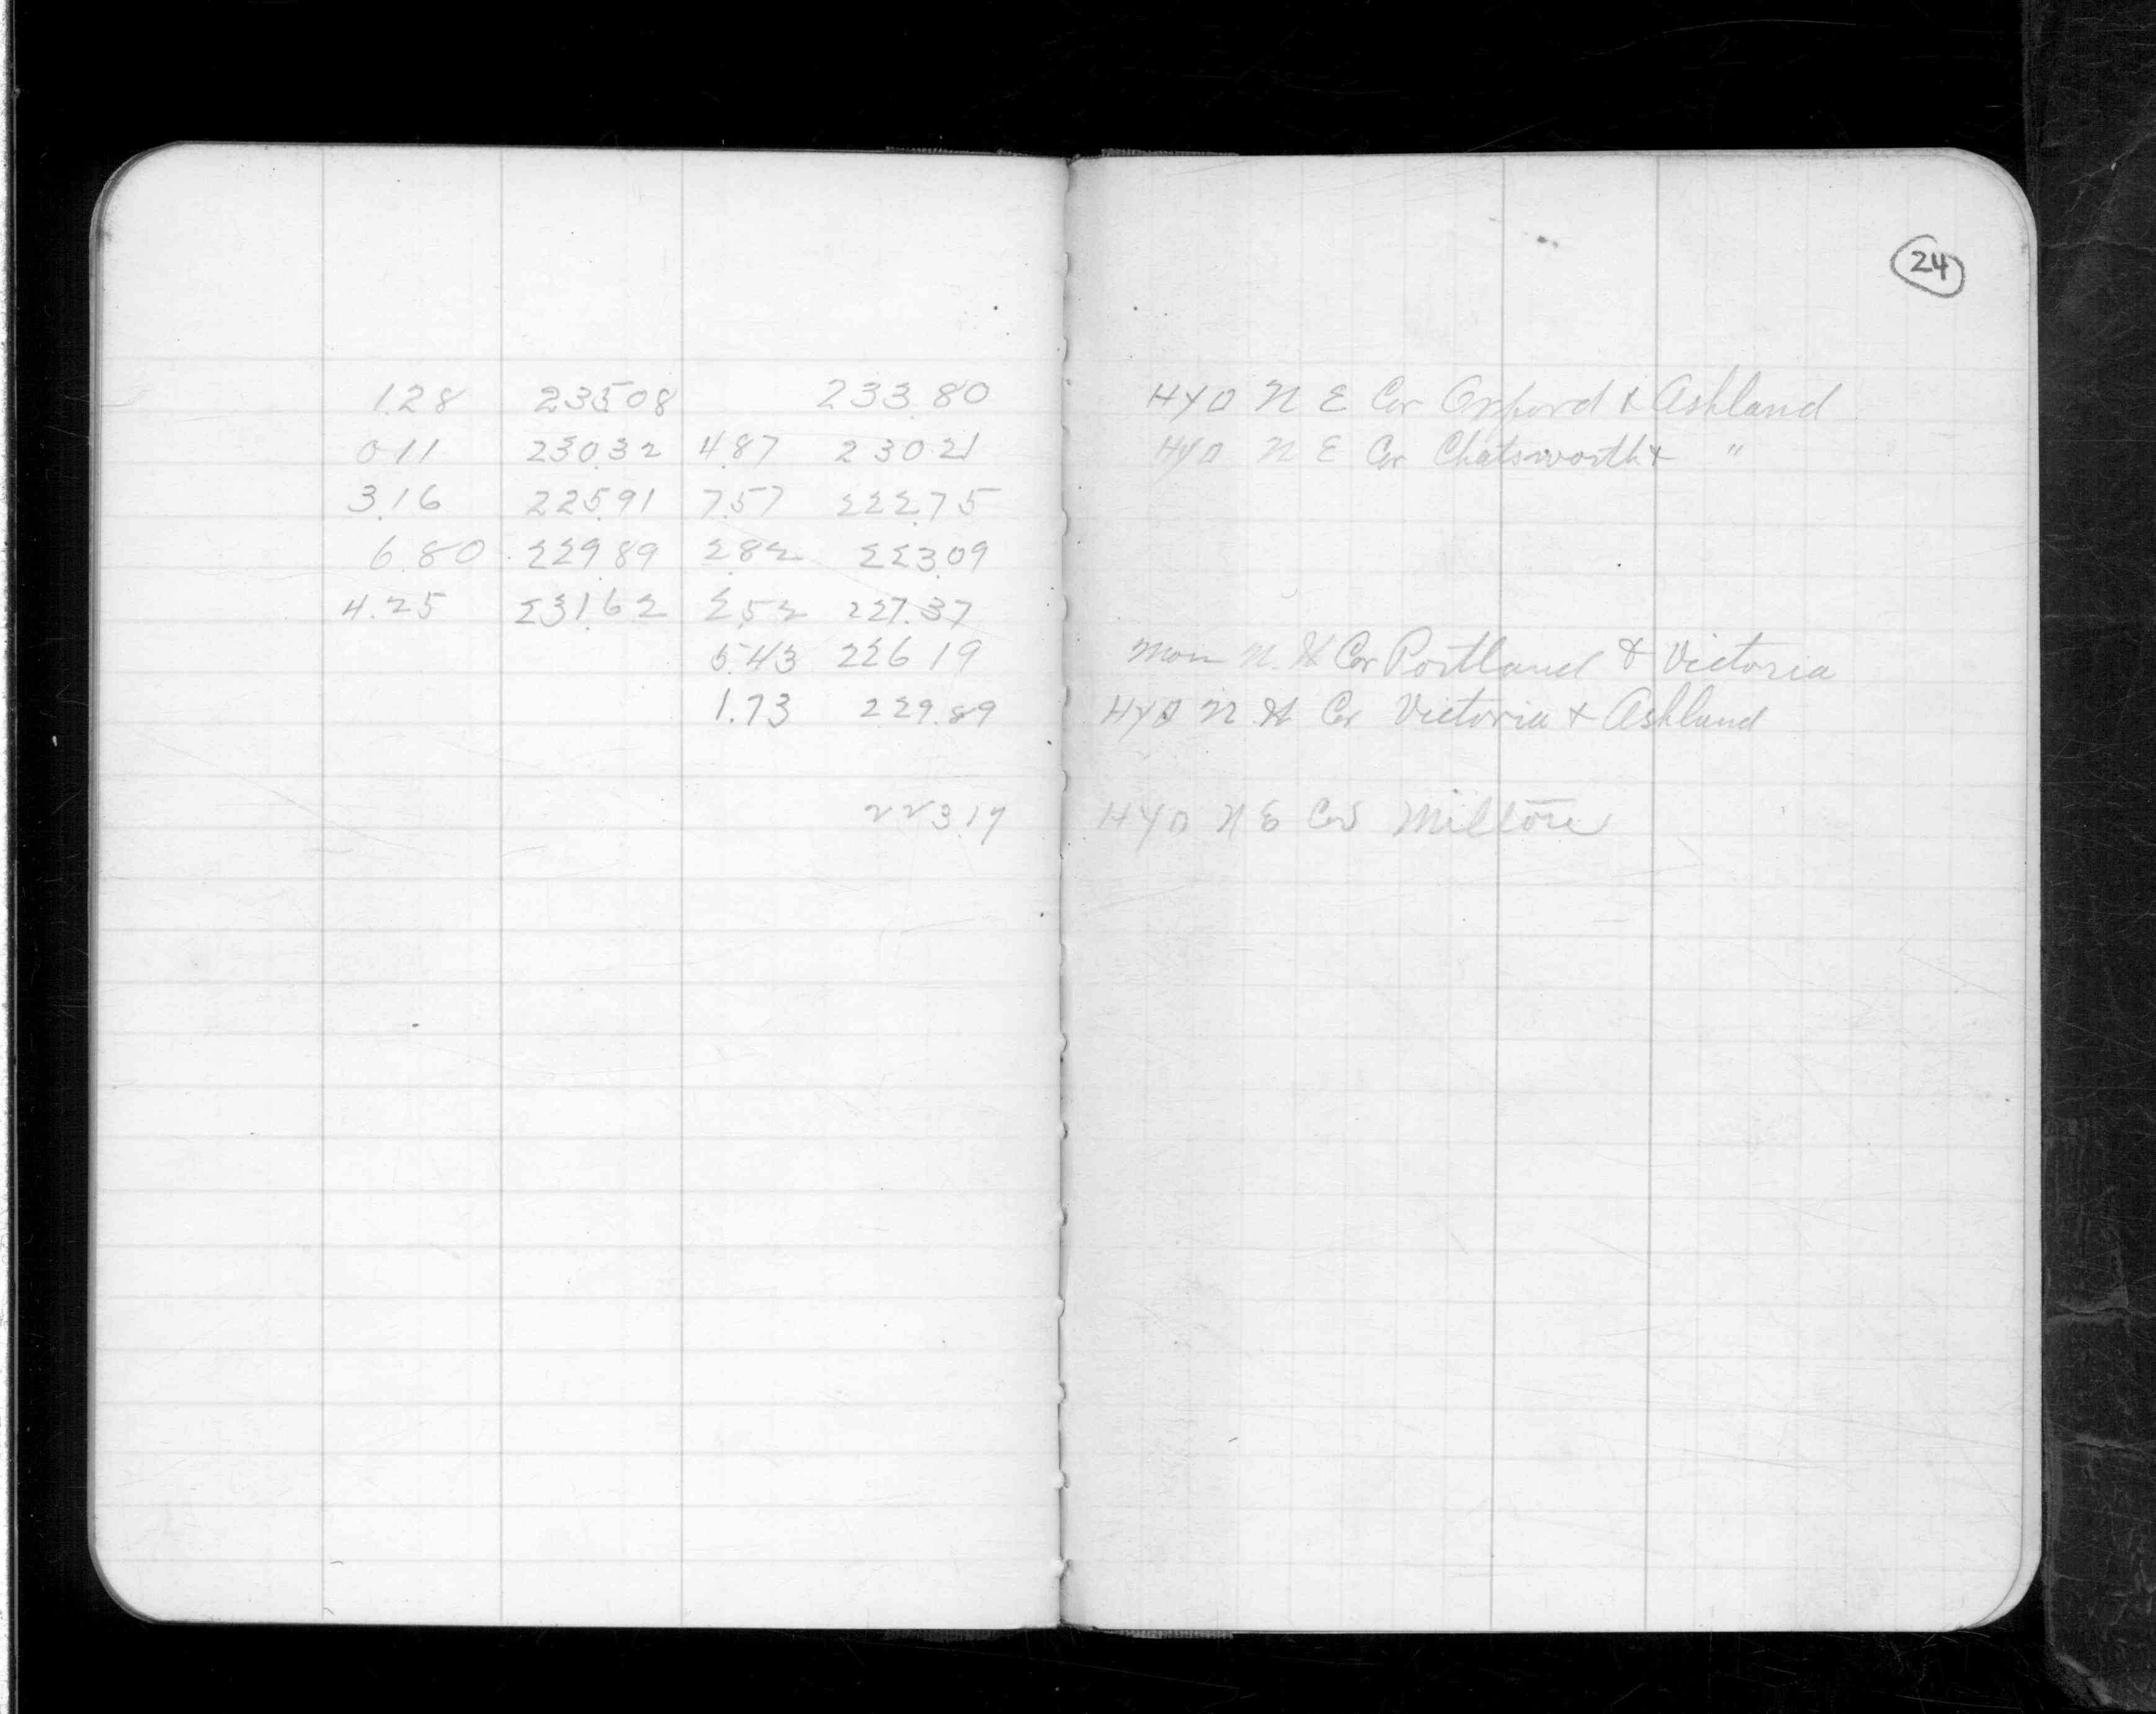 24
1.28 235.08 233.80 HYD N E Cor Oxford & Ashland
0.11 230.32 4.87 230.21 HYD N E Cor Chatsworth & "
3.16 225.91 7.57 222.75
6.80 229.89 2.82 223.09
4.25 231.62 2.52 227.37
5.43 226.19 Mon N. W Cor Portland & Victoria
1.73 229.89 HYD N. W Cor Victoria & Ashland
223.17 HYD N E Cor Milton